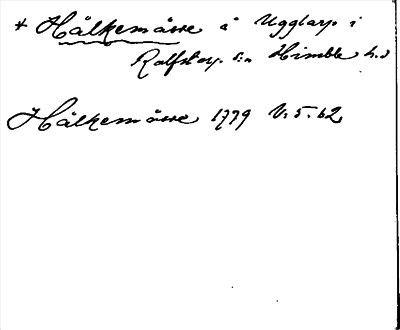 * Hålkemåsse å Ugglarp i
Rolfstorp s:n Himble h.d
Hålkemåsse 1779 V: 5. 62